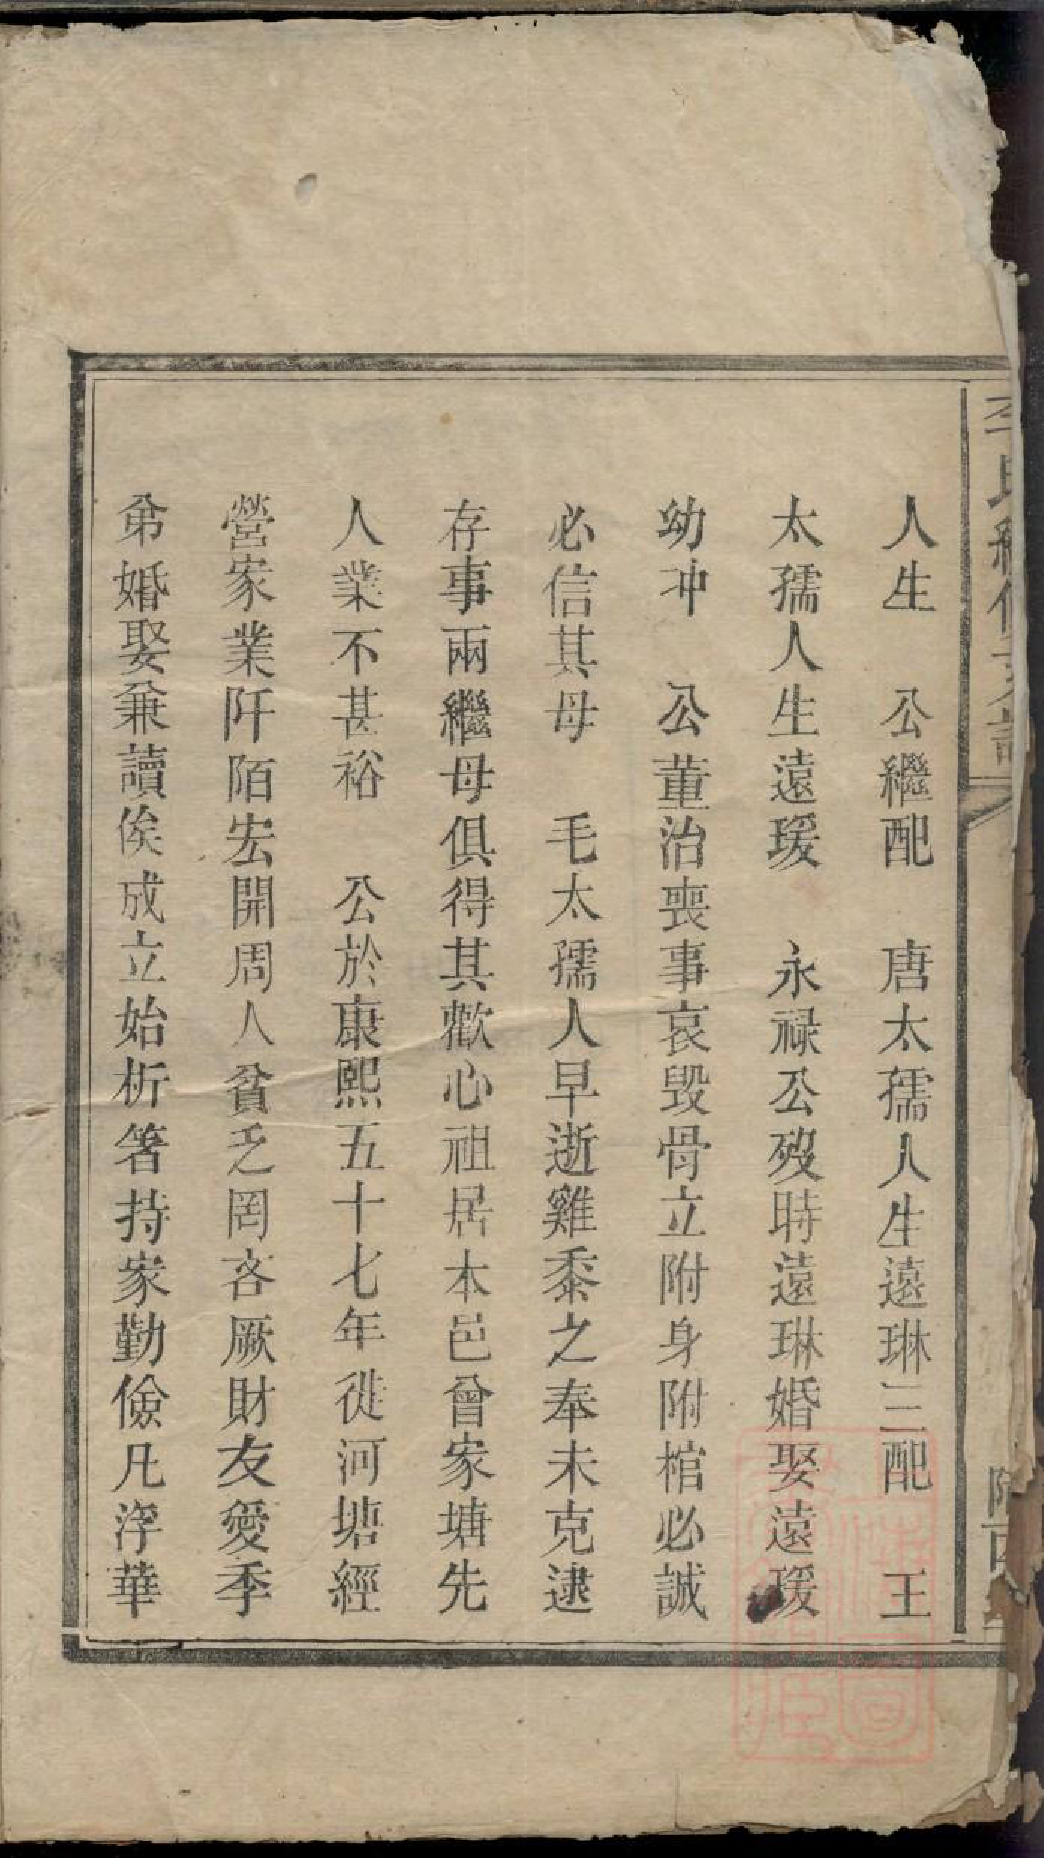 人生　公繼配　唐太孺人生遠琳三配　王
太孺人生遠瑗　永禄公歿時遠琳婚娶遠瑗
幼冲　公董治喪事哀毀骨立附身附棺必誠
必信其母　毛太孺人早逝雞黍之奉未克逮
存事兩繼母俱得其歡心祖居本邑曾家塘先
人業不甚裕　公於康熙五十七年徙河塘經
營家業阡陌宏開周人貧乏罔吝厥財友愛季
弟婚娶兼讀俟成立始析箸持家勤儉凡浮華